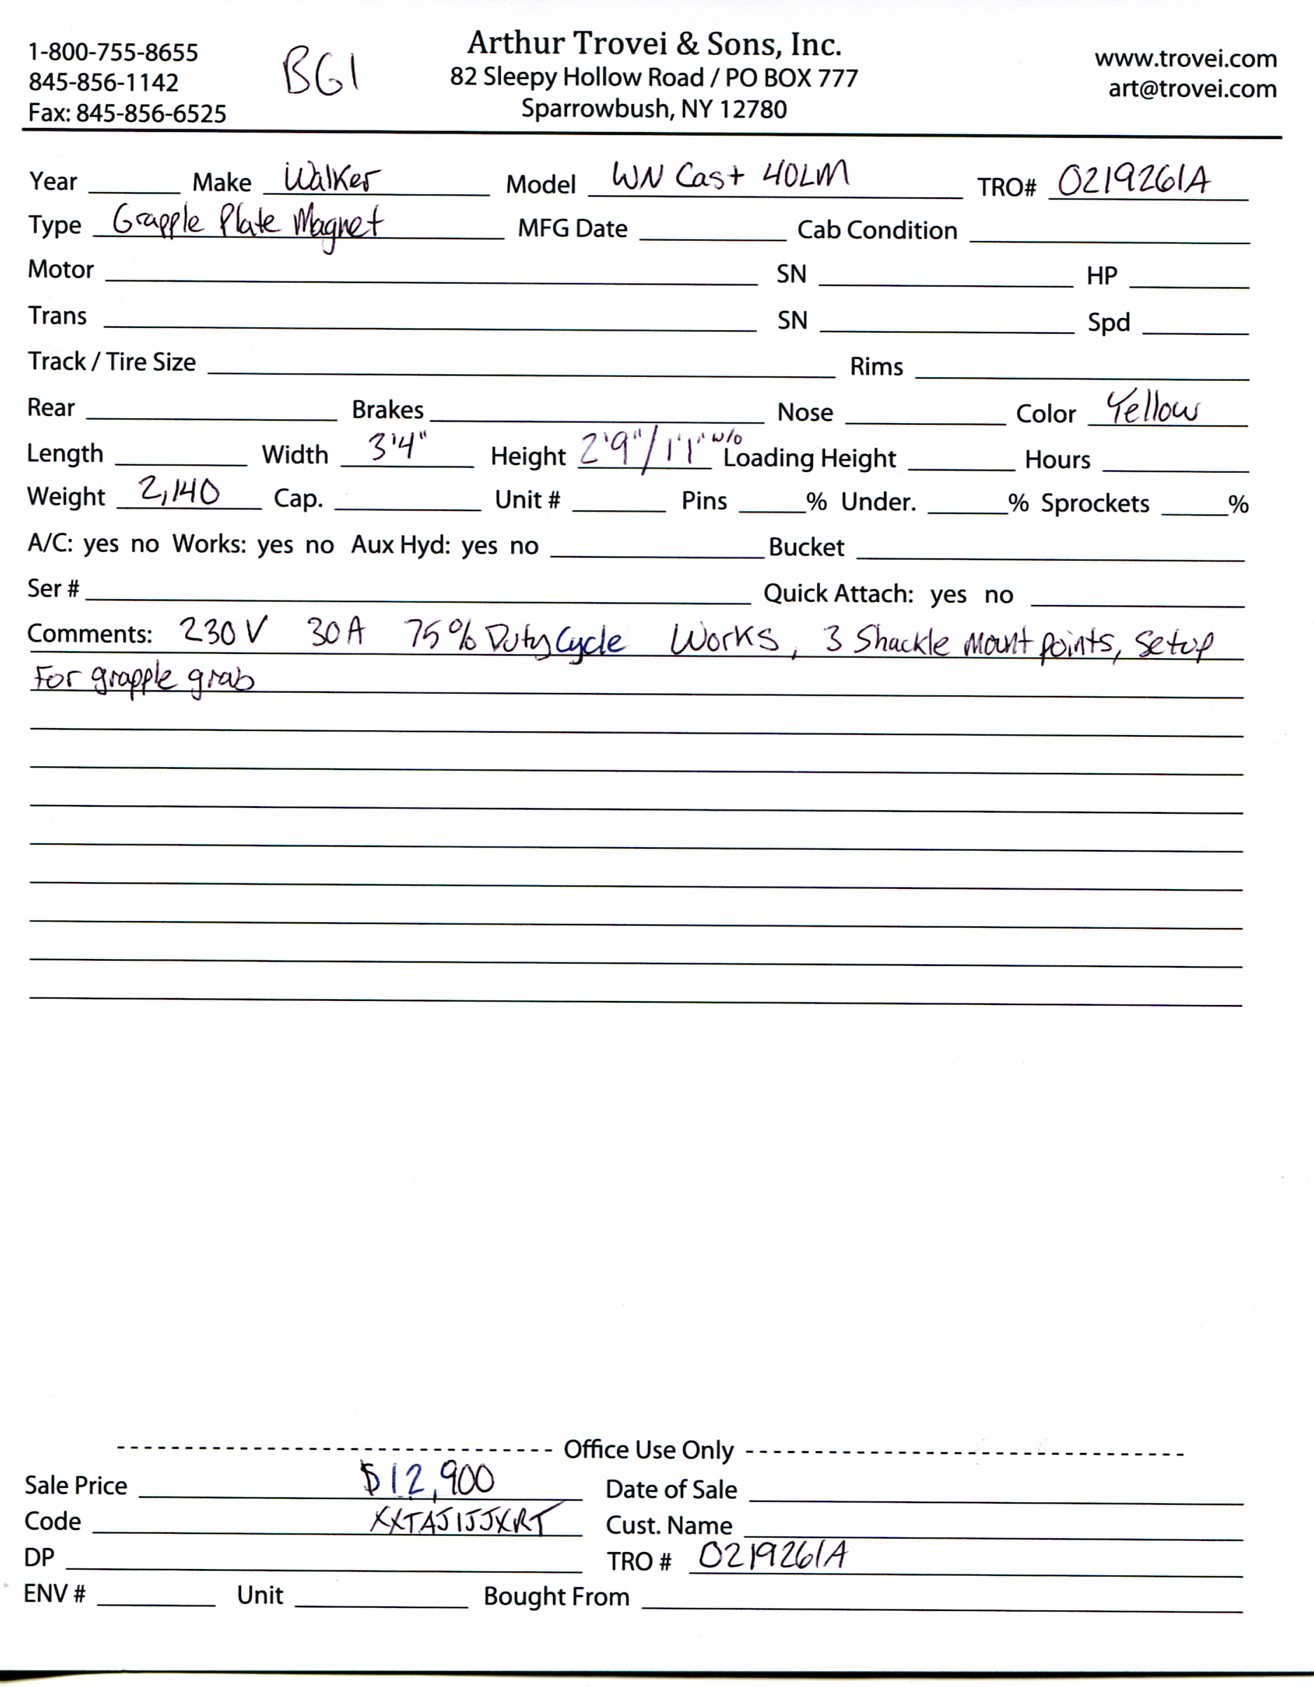 1-800-755-8655
845-856-1142
Fax: 845-856-6525
BG1
Arthur Trovei & Sons, Inc.
82 Sleepy Hollow Road / PO BOX 777
Sparrowbush, NY 12780
www.trovei.com
art@trovei.com
Year Make Walker Model WN Cast 40LM TRO# 0219261A
Type Grapple Plate Magnet MFG Date Cab Condition
Motor SN HP
Trans SN Spd
Track / Tire Size Rims
Rear Brakes Nose Color Yellow
Length Width 3'4" Height 2'9"/1'1" w/o Loading Height Hours
Weight 2,140 Cap. Unit # Pins % Under. % Sprockets %
A/C: yes no Works: yes no Aux Hyd: yes no Bucket
Ser # Quick Attach: yes no
Comments: 230V 30A 75% Duty Cycle Works, 3 Shackle mount points, setup
For grapple grab
Office Use Only
Sale Price $12,900 Date of Sale
Code XXTAJIJJXRT Cust. Name
DP TRO # 0219261A
ENV # Unit Bought From